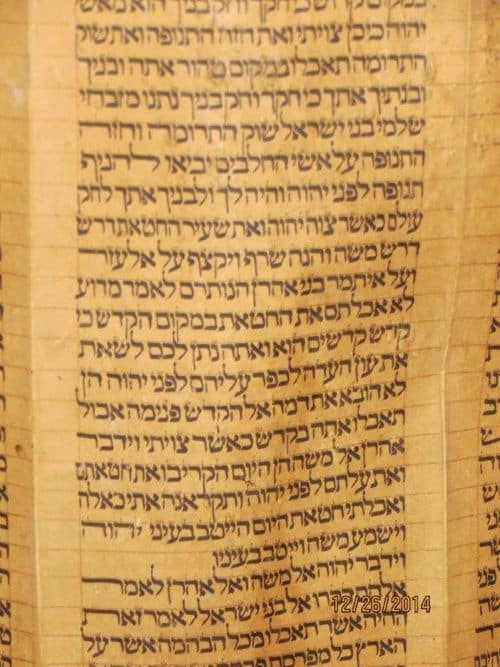 במקום קדוש כי חקך וחק בניך הוא מאשי
יהוה כי כן צויתי ואת חזה התנופה ואת שוק
התרומה תאכלו במקום טהור אתה ובניך
ובנתיך אתך כי חקך וחק בניך נתנו מזבחי
שלמי בני ישראל שוק התרומה וחזה
התנופה על אשי החלבים יביאו להניף
תנופה לפני יהוה והיה לך ולבניך אתך לחק
עולם כאשר צוה יהוה ואת שעיר החטאת דרש
דרש משה והנה שרף ויקצף על אלעזר
ועל איתמר בני אהרן הנותרם לאמר מדוע
לא אכלתם את החטאת במקום הקדש כי
קדש קדשים הוא ואתה נתן לכם לשאת
את עון העדה לכפר עליהם לפני יהוה הן
לא הובא את דמה אל הקדש פנימה אכול
תאכלו אתה בקדש כאשר צויתי וידבר
אהרן אל משה הן היום הקריבו את חטאתם
ואת עלתם לפני יהוה ותקראנה אתי כאלה
ואכלתי חטאת היום הייטב בעיני יהוה
וישמע משה וייטב בעיניו
וידבר יהוה אל משה ואל אהרן לאמר
אלהם דברו אל בני ישראל לאמר זאת
12/26/2014
החיה אשר תאכלו מכל הבהמה אשר על
הארץ כל מפרסת פרסה